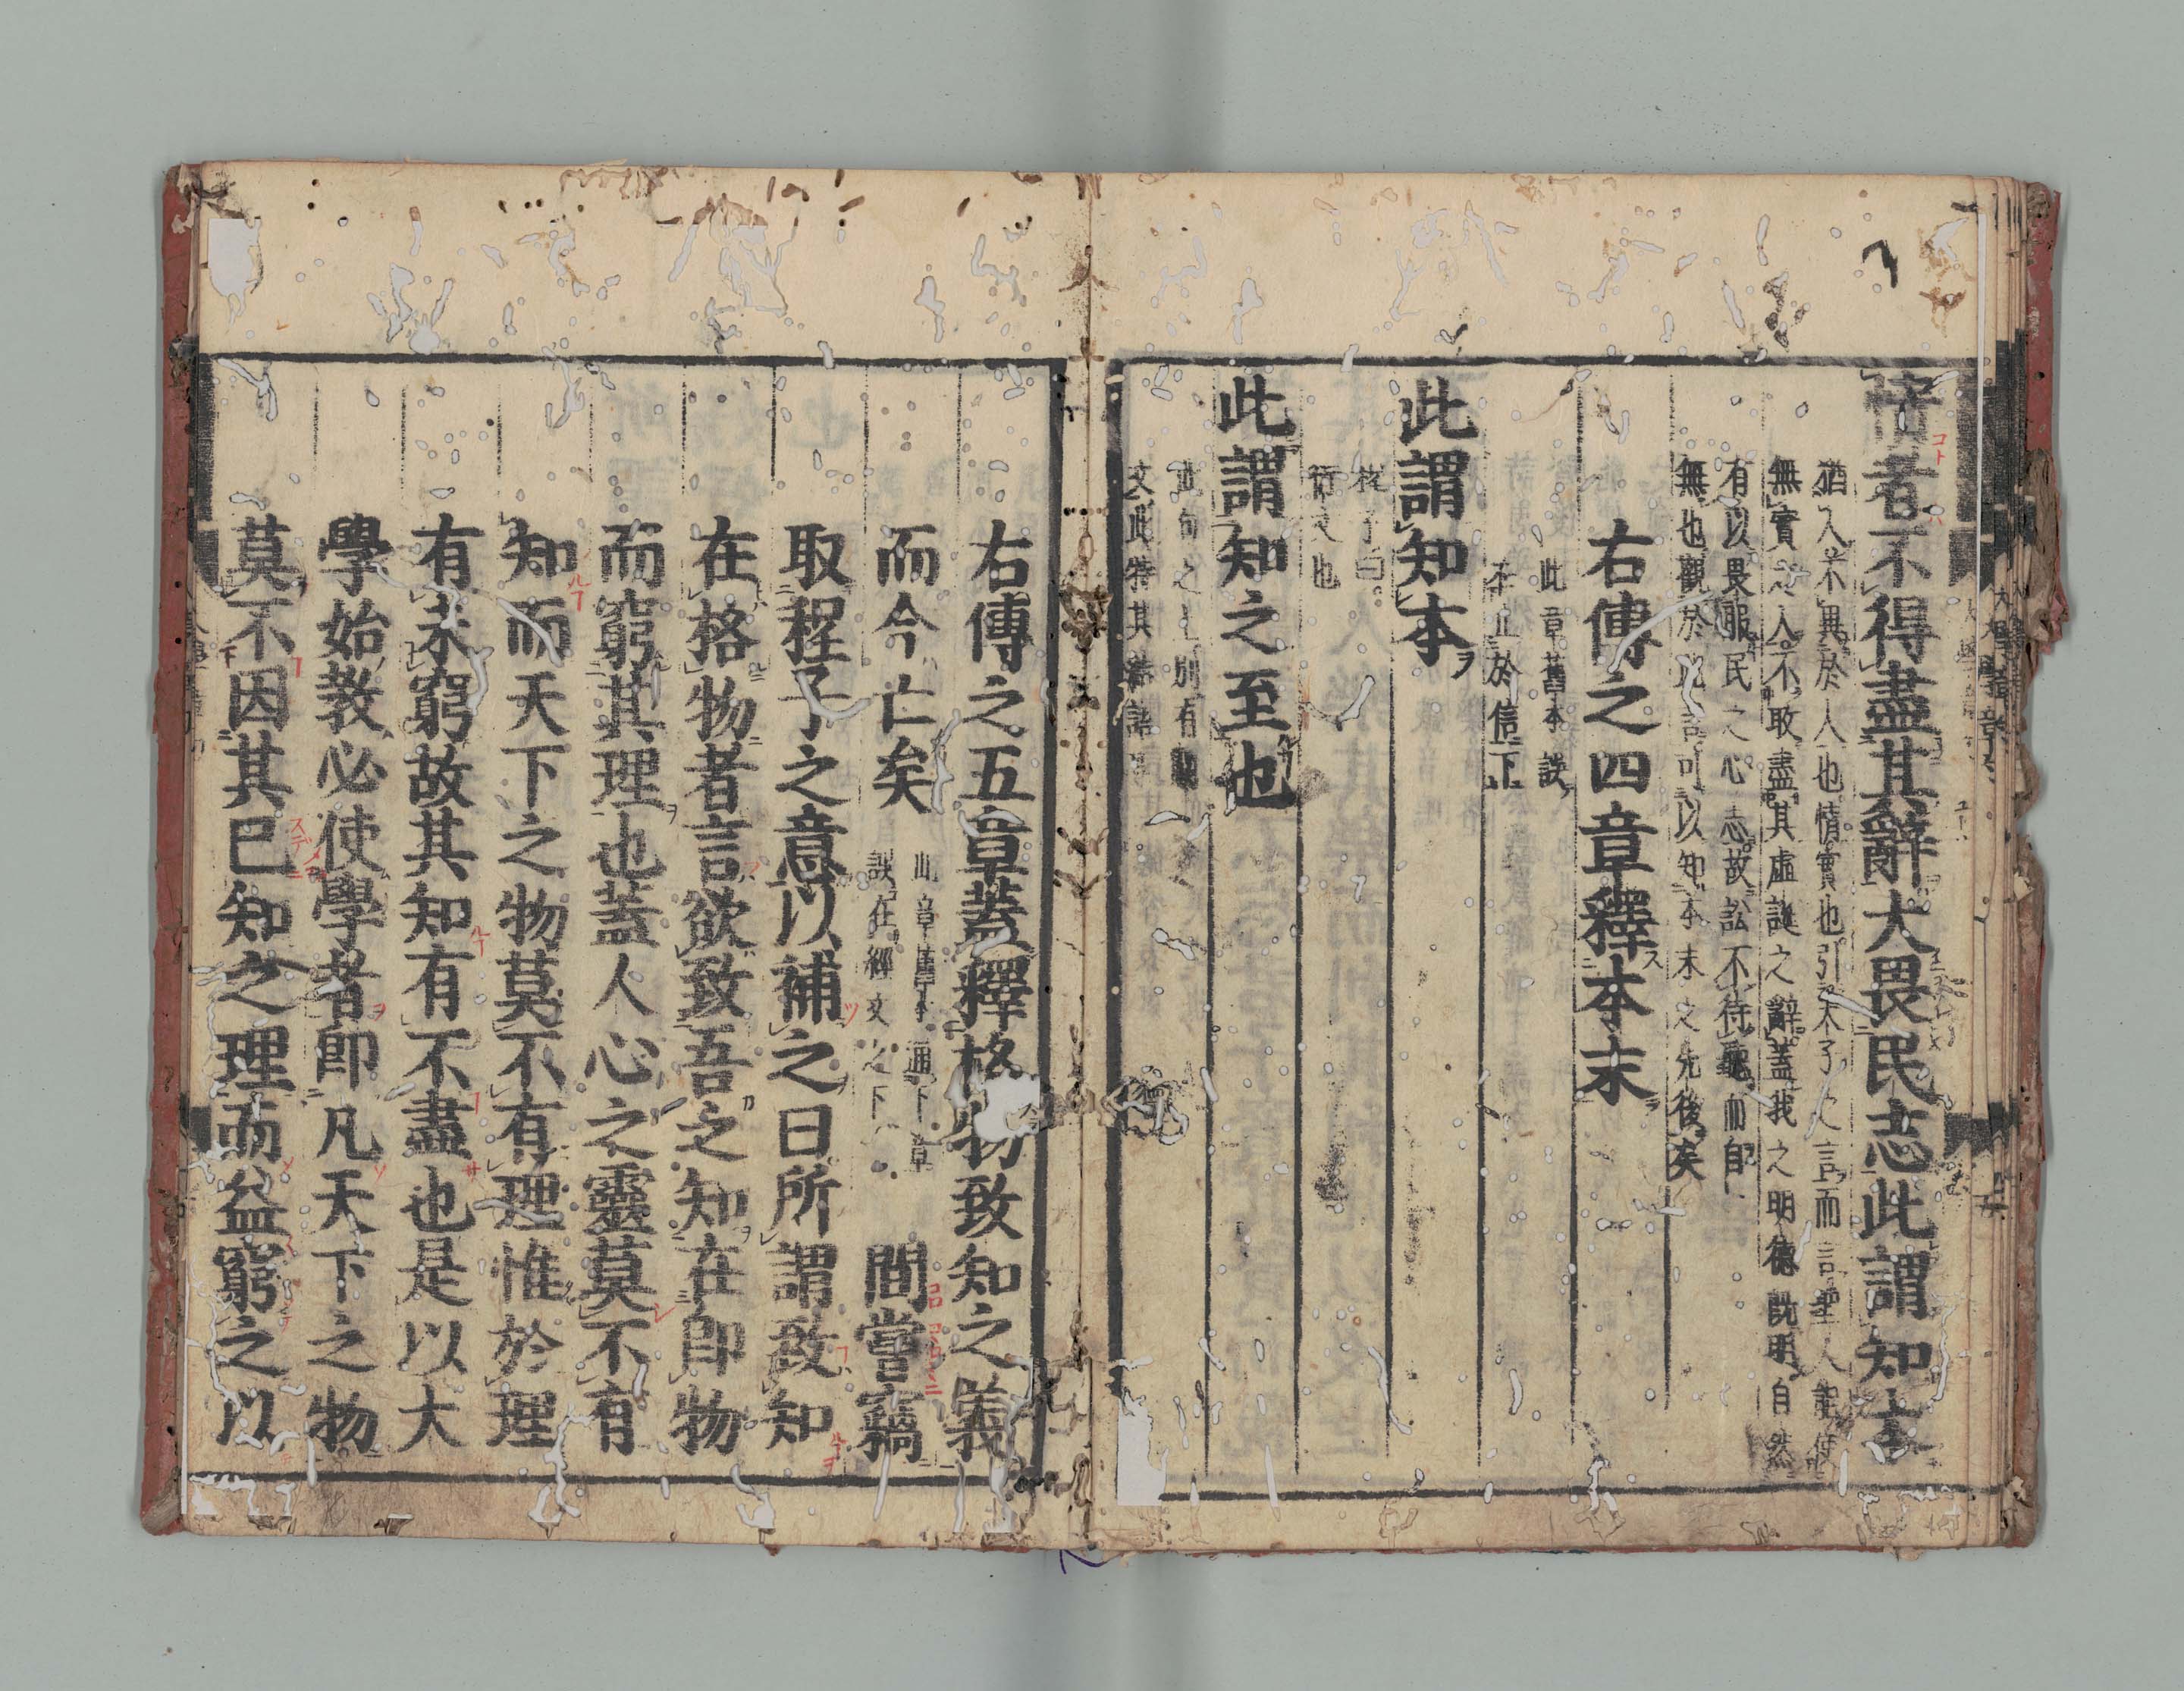 情者不得盡其辭大畏民志此謂知本
猶人不異於人也情實也引夫子之言而言聖人能使
無實之人不敢盡其虛誕之辭蓋我之明德既明自然
有以畏服民之心志故訟不待聽而自
無也觀於此言可以知本末之先後矣
右傳之四章釋本末
此章舊本誤
在止於信下
此謂知本
程子曰
衍文也
此謂知之至也
此句之上別有闕
文此特其結語耳
右傳之五章蓋釋格物致知之義
而今亡矣
此章舊本通下章
誤在經文之下
間嘗竊
取程子之意以補之曰所謂致知
在格物者言欲致吾之知在即物
而窮其理也蓋人心之靈莫不有
知而天下之物莫不有理惟於理
有未窮故其知有不盡也是以大
學始教必使學者即凡天下之物
莫不因其已知之理而益窮之以